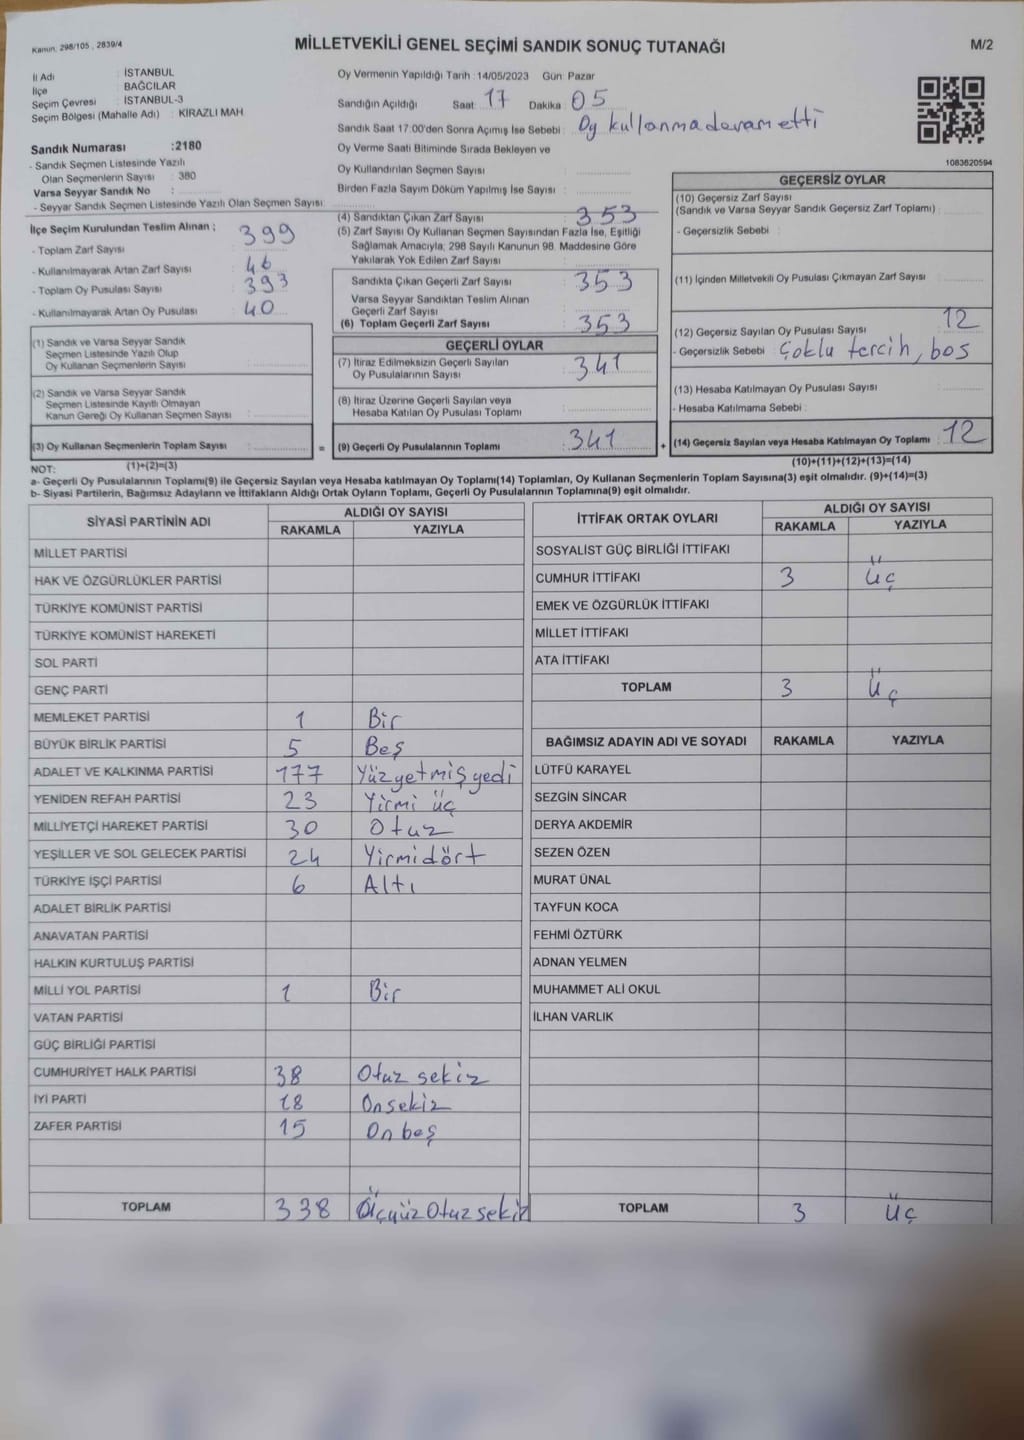 Kanun, 298/105 , 2839/4
MİLLETVEKİLİ GENEL SEÇİMİ SANDIK SONUÇ TUTANAĞI
M/2
İl Adı : İSTANBUL
İlçe : BAĞCILAR
Seçim Çevresi : İSTANBUL-3
Seçim Bölgesi (Mahalle Adı) : KİRAZLI MAH
Sandık Numarası :2180
- Sandık Seçmen Listesinde Yazılı
Olan Seçmenlerin Sayısı : 380
Varsa Seyyar Sandık No :
- Seyyar Sandık Seçmen Listesinde Yazılı Olan Seçmen Sayısı:
Oy Vermenin Yapıldığı Tarih :14/05/2023 Gün: Pazar
Sandığın Açıldığı Saat: 17 Dakika: 05
Sandık Saat 17:00'den Sonra Açımış İse Sebebi : Oy kullanma devam etti
Oy Verme Saati Bitiminde Sırada Bekleyen ve
Oy Kullandırılan Seçmen Sayısı :
Birden Fazla Sayım Döküm Yapılmış İse Sayısı :
1083620594
İlçe Seçim Kurulundan Teslim Alınan ;
- Toplam Zarf Sayısı 399
- Kullanılmayarak Artan Zarf Sayısı 46
- Toplam Oy Pusulası Sayısı 393
- Kullanılmayarak Artan Oy Pusulası 40
(1) Sandık ve Varsa Seyyar Sandık
Seçmen Listesinde Yazılı Olup
Oy Kullanan Seçmenlerin Sayısı :
(2) Sandık ve Varsa Seyyar Sandık
Seçmen Listesinde Kayıtlı Olmayan
Kanun Gereği Oy Kullanan Seçmen Sayısı :
(3) Oy Kullanan Seçmenlerin Toplam Sayısı :
(1)+(2)=(3)
(4) Sandıktan Çıkan Zarf Sayısı : 353
(5) Zarf Sayısı Oy Kullanan Seçmen Sayısından Fazla İse, Eşitliği
Sağlamak Amacıyla; 298 Sayılı Kanunun 98. Maddesine Göre
Yakılarak Yok Edilen Zarf Sayısı :
Sandıkta Çıkan Geçerli Zarf Sayısı : 353
Varsa Seyyar Sandıktan Teslim Alınan
Geçerli Zarf Sayısı :
(6) Toplam Geçerli Zarf Sayısı : 353
GEÇERLİ OYLAR
(7) İtiraz Edilmeksizin Geçerli Sayılan
Oy Pusulalarının Sayısı : 341
(8) İtiraz Üzerine Geçerli Sayılan veya
Hesaba Katılan Oy Pusulası Toplamı :
= (9) Geçerli Oy Pusulalarının Toplamı : 341
GEÇERSİZ OYLAR
(10) Geçersiz Zarf Sayısı
(Sandık ve Varsa Seyyar Sandık Geçersiz Zarf Toplamı) :
- Geçersizlik Sebebi :
(11) İçinden Milletvekili Oy Pusulası Çıkmayan Zarf Sayısı :
(12) Geçersiz Sayılan Oy Pusulası Sayısı : 12
- Geçersizlik Sebebi : Çoklu tercih, boş
(13) Hesaba Katılmayan Oy Pusulası Sayısı :
- Hesaba Katılmama Sebebi :
+ (14) Geçersiz Sayılan veya Hesaba Katılmayan Oy Toplamı : 12
(10)+(11)+(12)+(13)=(14)
NOT:
a- Geçerli Oy Pusulalarının Toplamı(9) ile Geçersiz Sayılan veya Hesaba katılmayan Oy Toplamı(14) Toplamları, Oy Kullanan Seçmenlerin Toplam Sayısına(3) eşit olmalıdır. (9)+(14)=(3)
b- Siyasi Partilerin, Bağımsız Adayların ve İttifakların Aldığı Ortak Oyların Toplamı, Geçerli Oy Pusulalarının Toplamına(9) eşit olmalıdır.
SİYASİ PARTİNİN ADI ALDIĞI OY SAYISI
RAKAMLA YAZIYLA
MİLLET PARTİSİ
HAK VE ÖZGÜRLÜKLER PARTİSİ
TÜRKİYE KOMÜNİST PARTİSİ
TÜRKİYE KOMÜNİST HAREKETİ
SOL PARTİ
GENÇ PARTİ
MEMLEKET PARTİSİ 1 Bir
BÜYÜK BİRLİK PARTİSİ 5 Beş
ADALET VE KALKINMA PARTİSİ 177 Yüzyetmişyedi
YENİDEN REFAH PARTİSİ 23 Yirmi üç
MİLLİYETÇİ HAREKET PARTİSİ 30 Otuz
YEŞİLLER VE SOL GELECEK PARTİSİ 24 Yirmidört
TÜRKİYE İŞÇİ PARTİSİ 6 Altı
ADALET BİRLİK PARTİSİ
ANAVATAN PARTİSİ
HALKIN KURTULUŞ PARTİSİ
MİLLİ YOL PARTİSİ 1 Bir
VATAN PARTİSİ
GÜÇ BİRLİĞİ PARTİSİ
CUMHURİYET HALK PARTİSİ 38 Otuz sekiz
İYİ PARTİ 18 Onsekiz
ZAFER PARTİSİ 15 On beş
TOPLAM 338 Üçyüz Otuz sekiz
İTTİFAK ORTAK OYLARI ALDIĞI OY SAYISI
RAKAMLA YAZIYLA
SOSYALİST GÜÇ BİRLİĞİ İTTİFAKI
CUMHUR İTTİFAKI 3 Üç
EMEK VE ÖZGÜRLÜK İTTİFAKI
MİLLET İTTİFAKI
ATA İTTİFAKI
TOPLAM 3 Üç
BAĞIMSIZ ADAYIN ADI VE SOYADI RAKAMLA YAZIYLA
LÜTFÜ KARAYEL
SEZGİN SİNCAR
DERYA AKDEMİR
SEZEN ÖZEN
MURAT ÜNAL
TAYFUN KOCA
FEHMİ ÖZTÜRK
ADNAN YELMEN
MUHAMMET ALİ OKUL
İLHAN VARLIK
TOPLAM 3 Üç